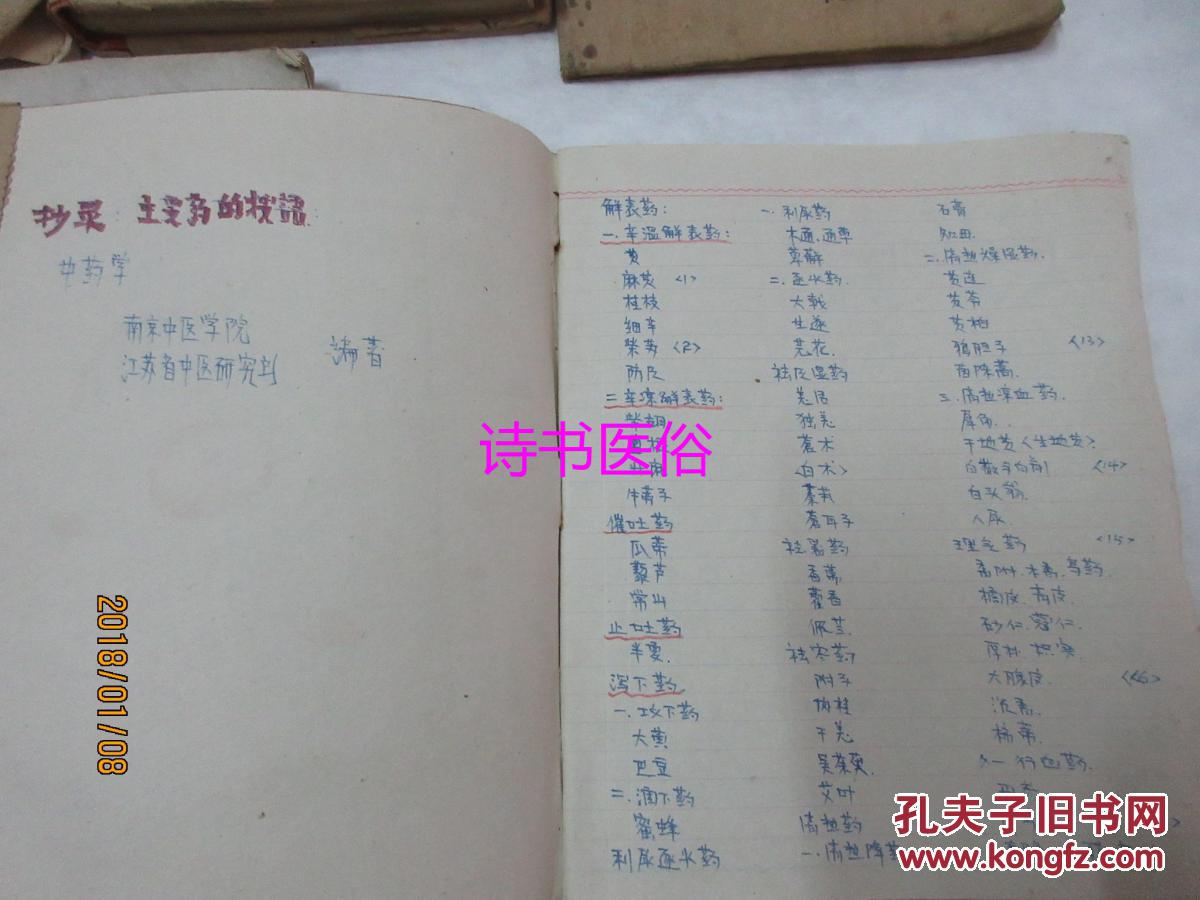 抄录: 主要药的按语.
中药学
南京中医学院
江苏省中医研究所
编著
解表药:
一. 辛温解表药:
麻黄 <1>
桂枝
细辛
紫苏 <2>
防风
二 辛凉解表药:
柴胡
牛蒡子
催吐药
瓜蒂
藜芦
常山
止吐药
半夏.
泻下药
一. 攻下药
大黄
巴豆
二. 润下药
蜜蜂
利尿逐水药
一. 利尿药
木通. 通草
萆薢
二. 逐水药.
大戟
甘遂
芫花.
祛风湿药
羌活
独羌
苍术
<白术>
秦艽
苍耳子
祛暑药
香薷
藿香
佩兰.
祛寒药
附子
肉桂
干姜
吴茱萸.
艾叶
清热药
一. 清热降
石膏
知母.
二. 清热燥湿药.
黄连
黄芩
黄柏
鸦胆子 <13>
茵陈蒿.
三. 清热凉血药.
犀角..
干地黄<生地黄>.
白薇与白前 <14>
白头翁.
人尿.
理气药 <15>
香附. 木香. 乌药.
橘皮. 青皮.
砂仁. 蔻仁.
厚朴. 枳实.
大腹皮. <16>
沉香.
柿蒂.
诗书医俗
2018/01/08
孔夫子旧书网
www.kongfz.com